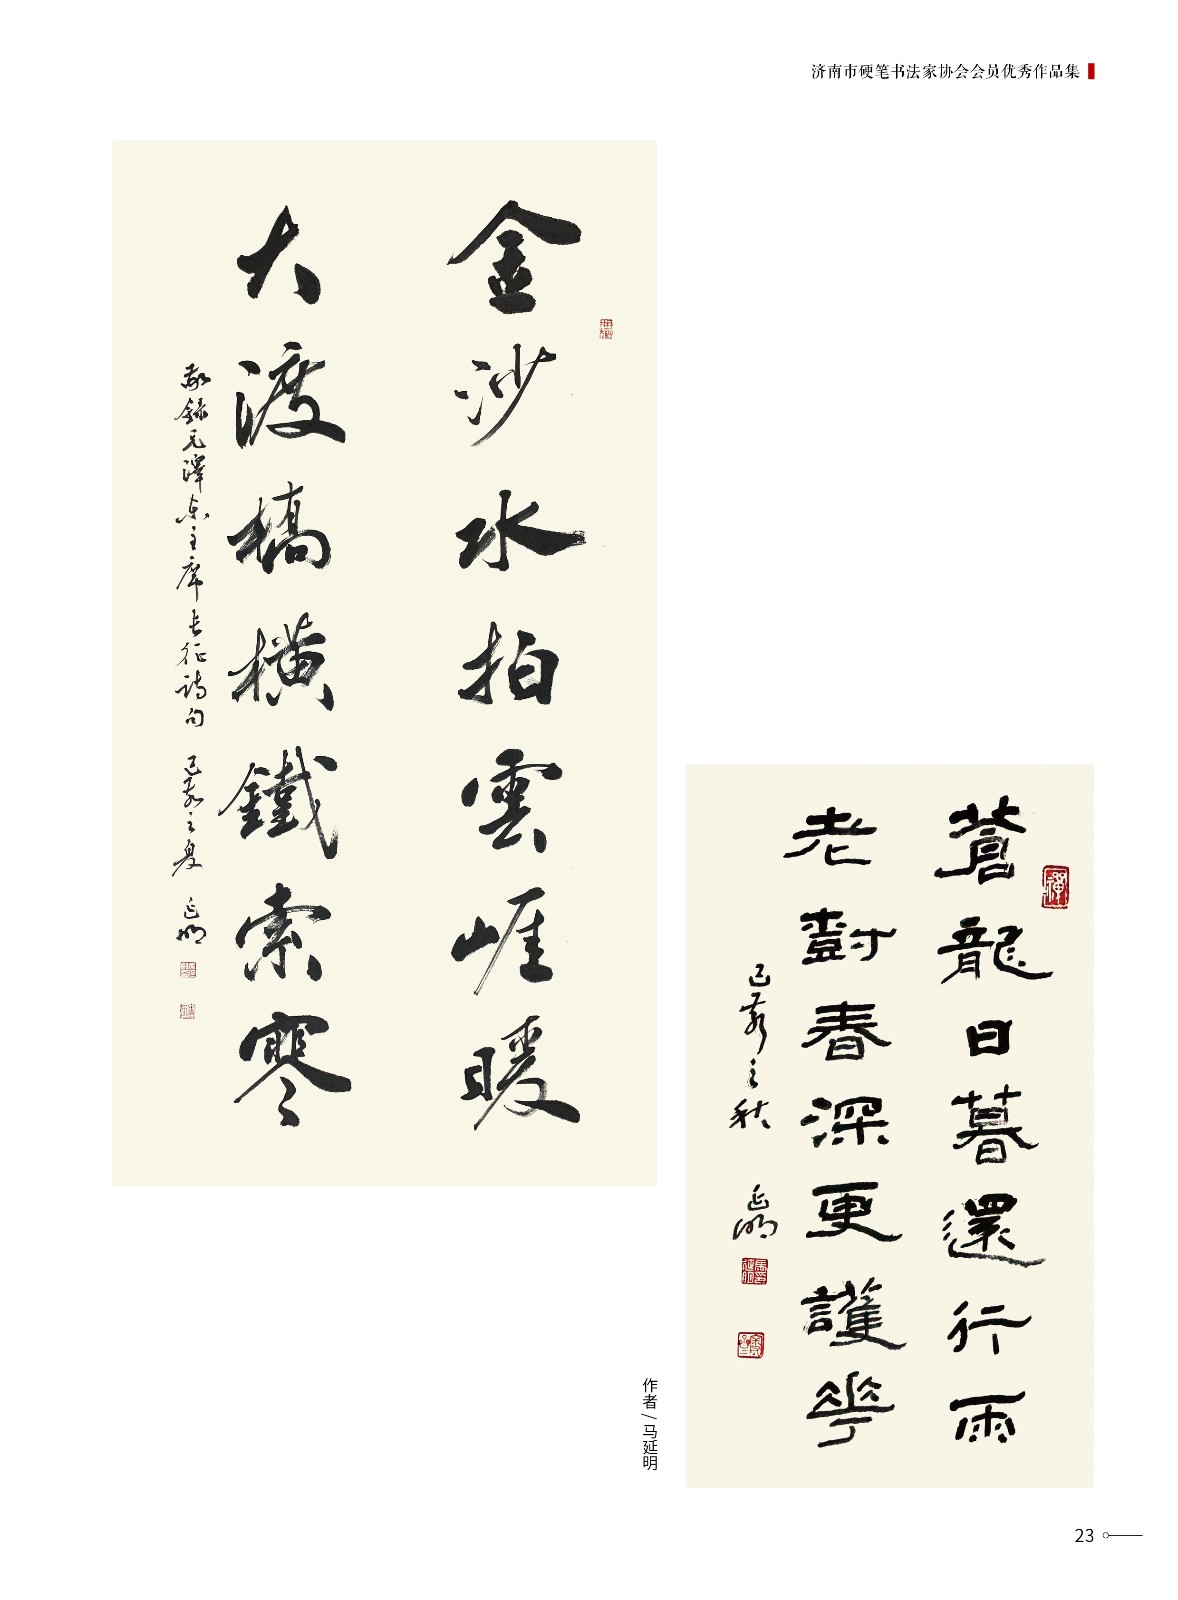 济南市硬笔书法家协会会员优秀作品集
金沙水拍雲崖暖
大渡橋橫鐵索寒
敬録毛澤東主席長征詩句 己亥之夏 延明
蒼龍日暮還行雨
老對春深更護華
己亥之秋 延明
作者/马延明
23